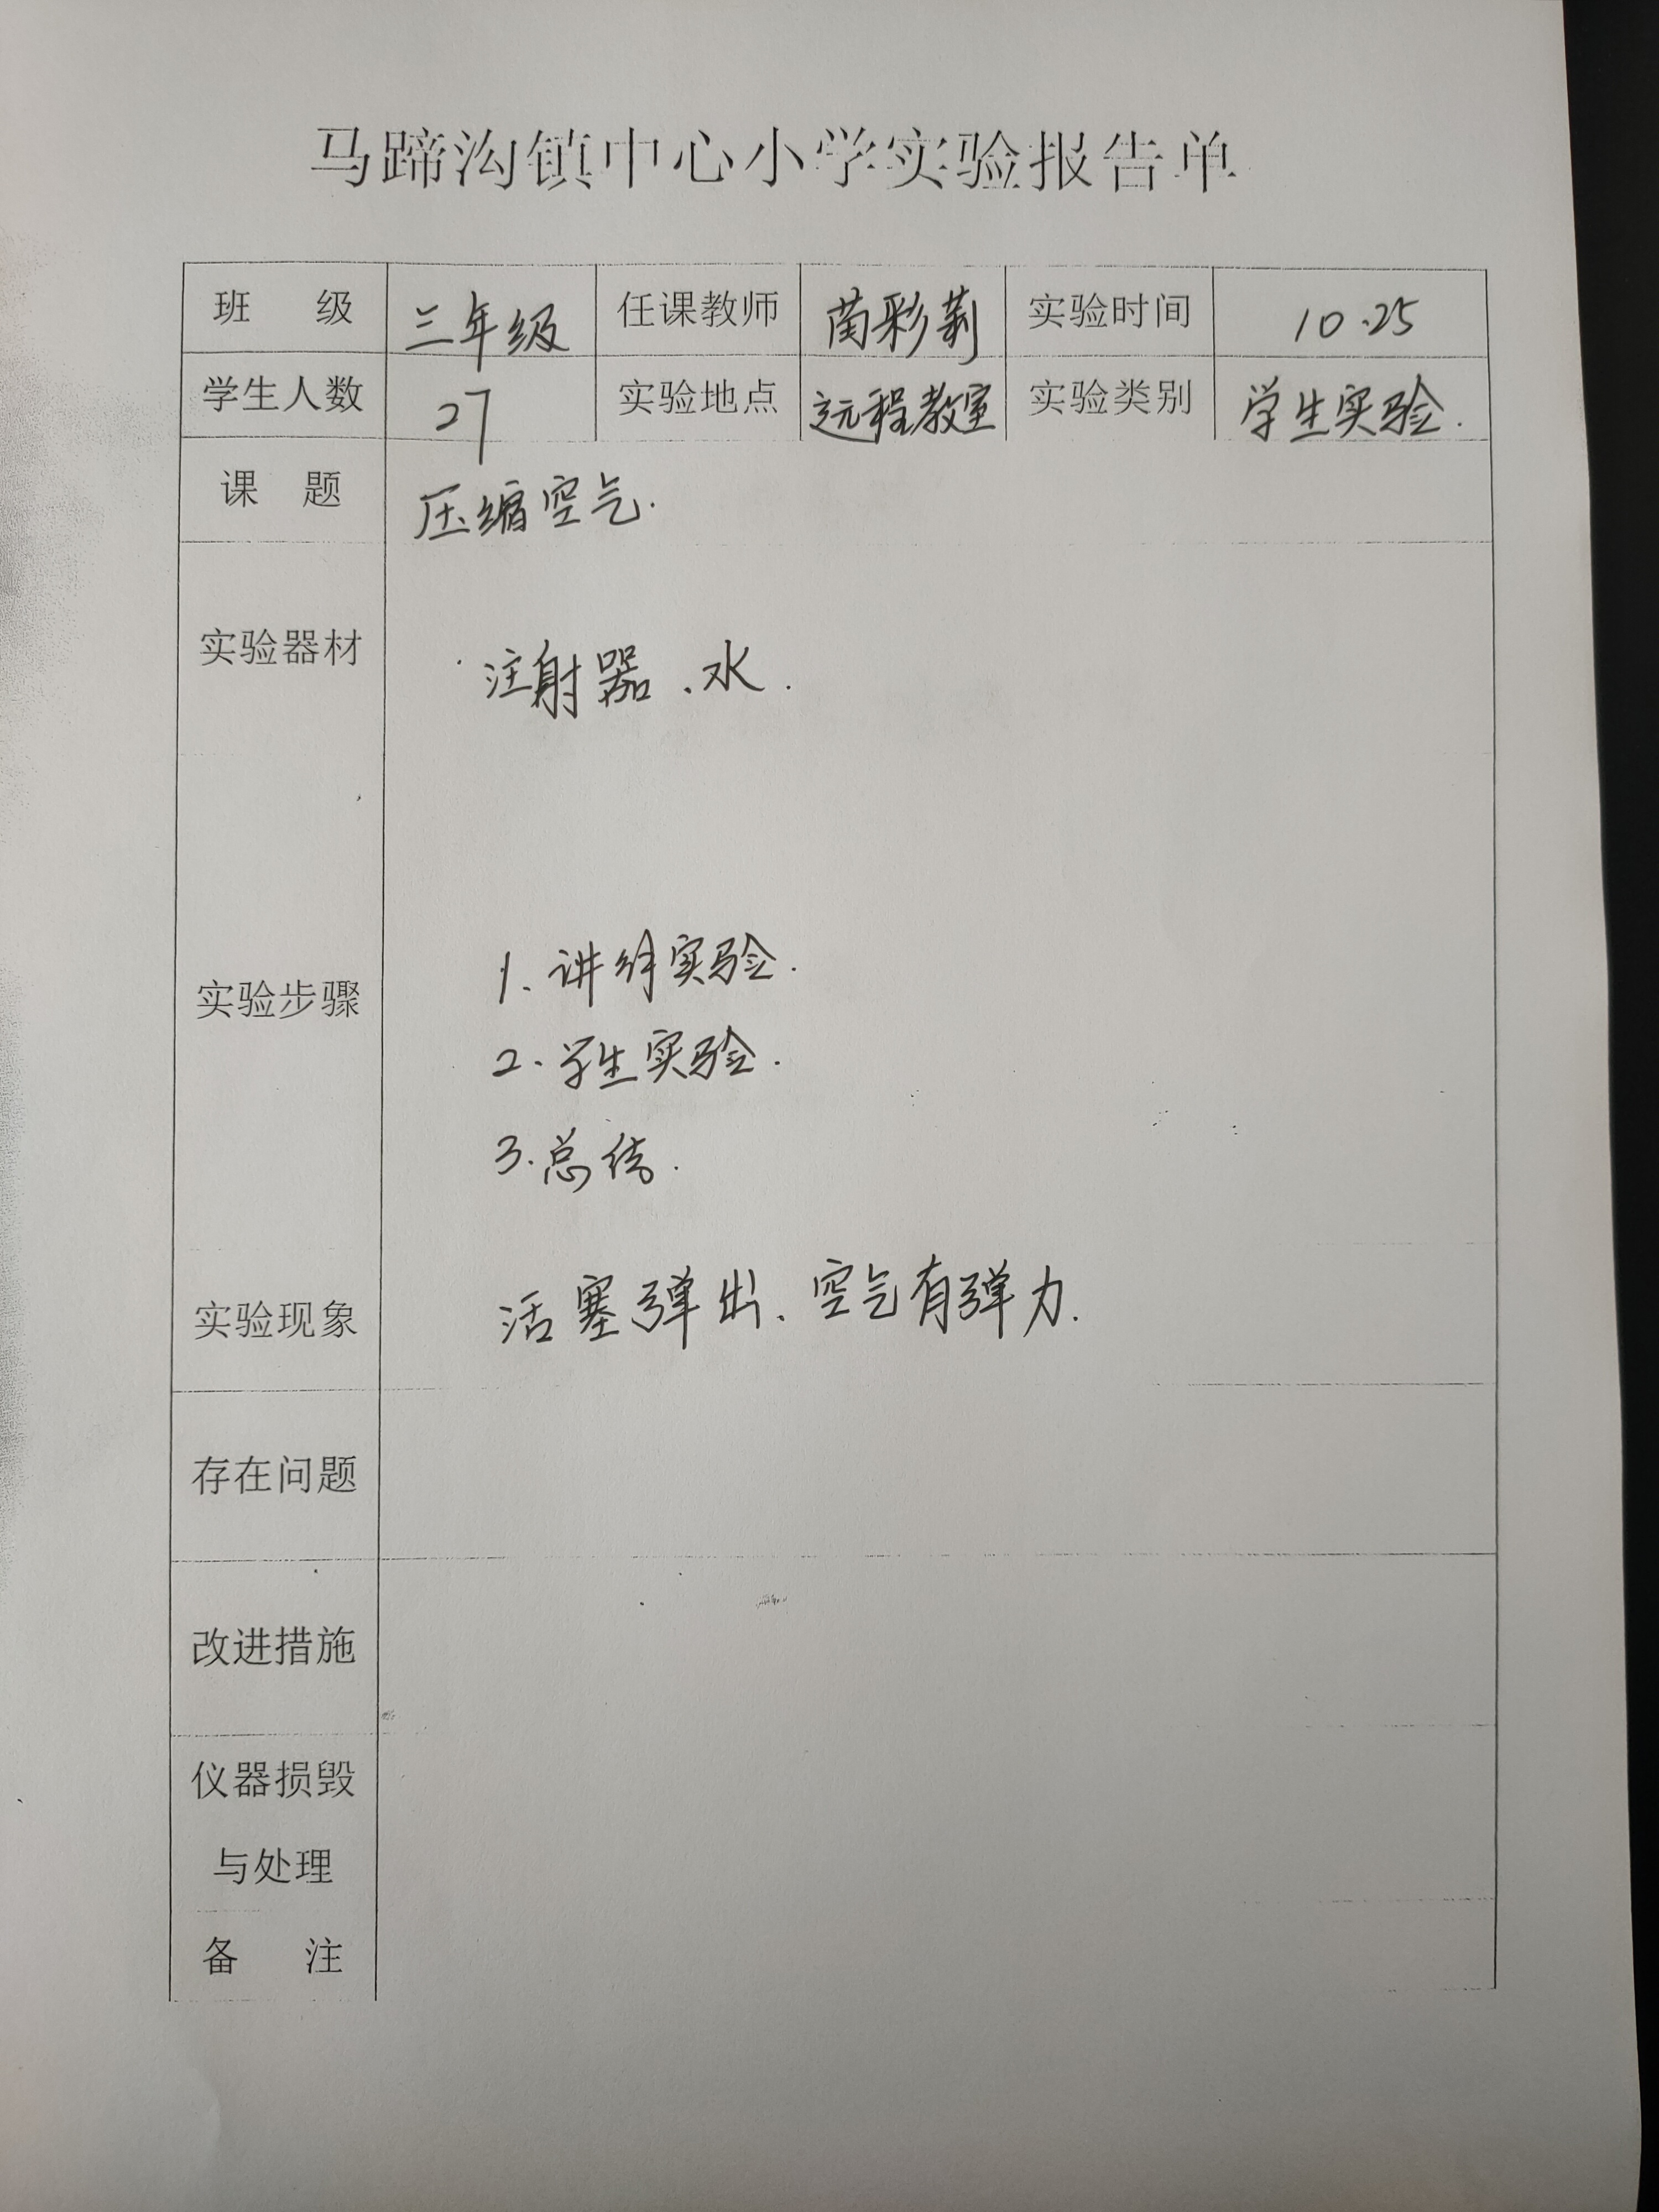 马蹄沟镇中心小学实验报告单
班 级 三年级 任课教师 苗彩莉 实验时间 10.25
学生人数 27 实验地点 远程教室 实验类别 学生实验.
课 题 压缩空气.
实验器材 注射器、水.
实验步骤
1、讲解实验.
2、学生实验.
3、总结.
实验现象 活塞弹出、空气有弹力.
存在问题
改进措施
仪器损毁
与处理
备 注